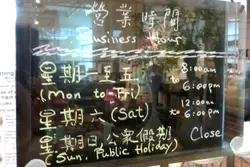 營業時間
Business Hour
星期一至五 8:00am
(Mon to Fri) to 6:00pm
星期六 (Sat) 12:00am
to 6:00pm
星期日 公眾假期 Close
(Sun, Public Holiday)